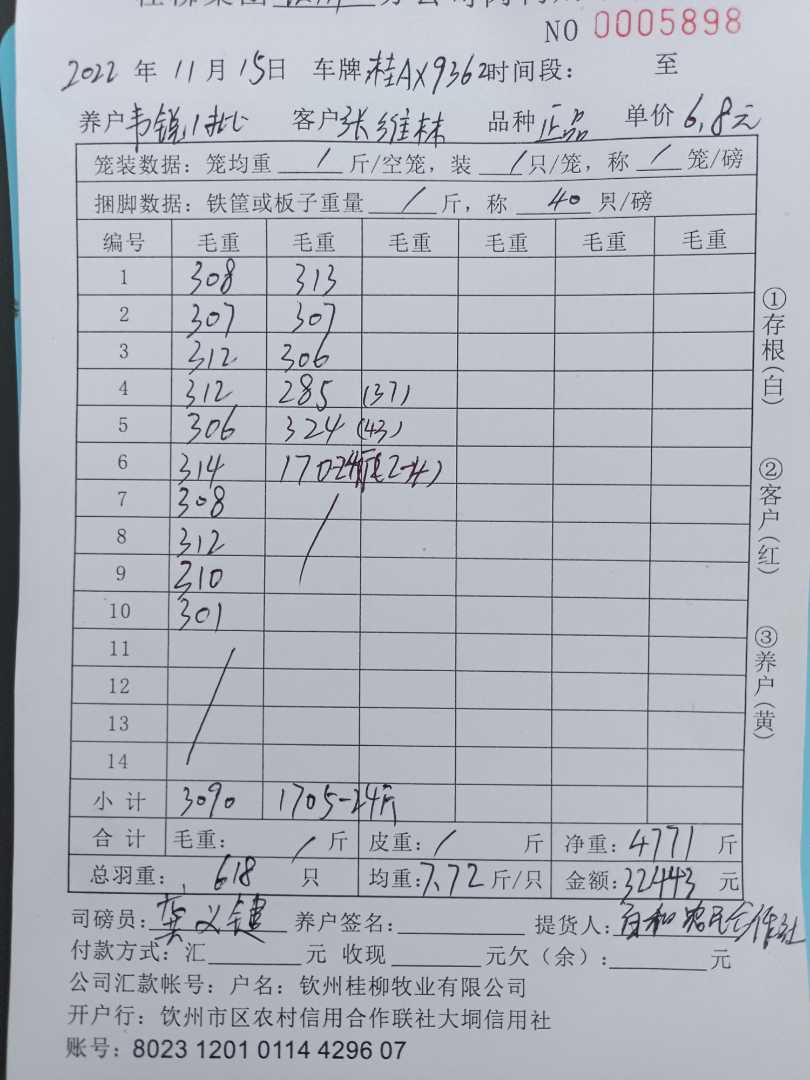 NO 0005898
2022 年 11 月 15 日 车牌 桂AX9362 时间段: 至
养户 韦锐1批 客户 张维林 品种 正品 单价 6.8元
笼装数据: 笼均重 / 斤/空笼, 装 / 只/笼, 称 / 笼/磅
捆脚数据: 铁筐或板子重量 / 斤, 称 40 只/磅
编号 毛重 毛重 毛重 毛重 毛重 毛重
1 308 313
2 307 307
3 312 306
4 312 285 (37)
5 306 324 (43)
6 314 170-24斤
7 308 /
8 312
9 310
10 301
11 /
12
13
14
小计 3090 1705-24斤
合计 毛重: / 斤 皮重: / 斤 净重: 4771 斤
总羽重: 618 只 均重: 7.72 斤/只 金额: 32443 元
司磅员: 龚义键 养户签名: 提货人: 百和农民合作社
付款方式: 汇 元 收现 元欠(余): 元
公司汇款帐号: 户名: 钦州桂柳牧业有限公司
开户行: 钦州市区农村信用合作联社大垌信用社
账号: 8023 1201 0114 4296 07
①存根(白)
②客户(红)
③养户(黄)